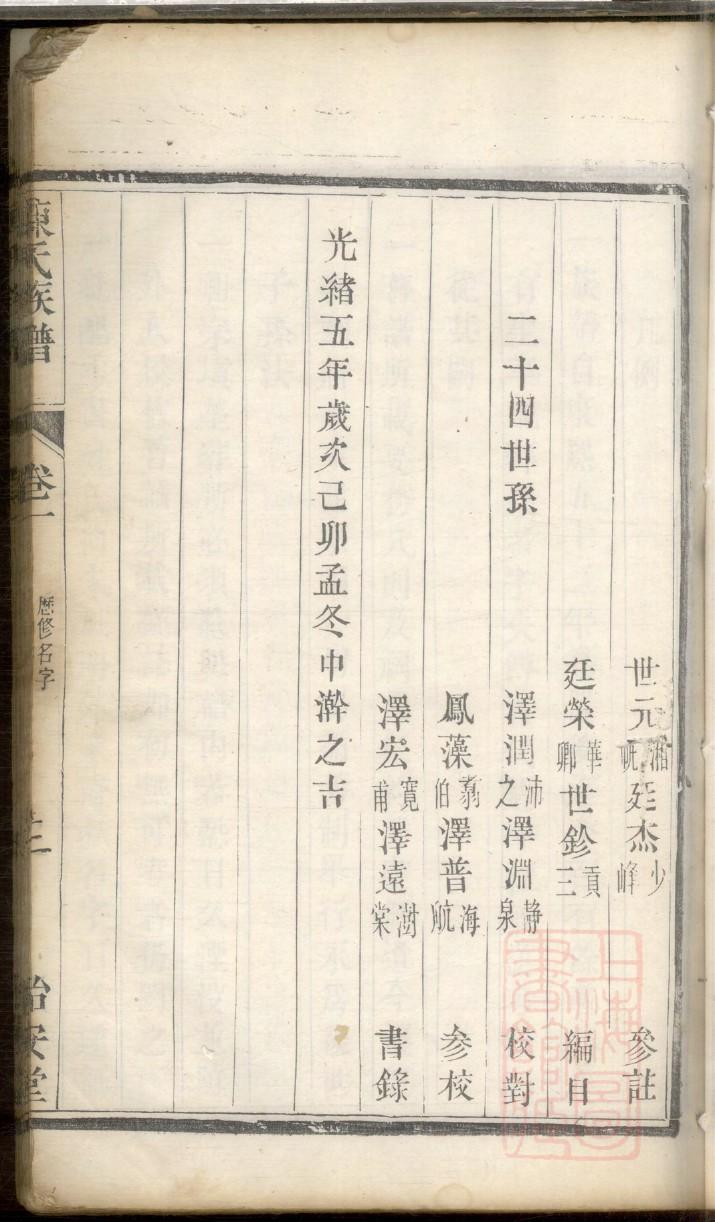 世元湘畹廷杰少峰 參註
廷榮華卿世鉁貢三 編目
二十四世孫 澤潤沛之澤淵静泉 校對
鳳藻翥伯澤普海航 参校
澤宏寬甫澤遠澍棠 書錄
光緒五年歲次己卯孟冬中澣之吉
陳氏族譜 卷一 歷修名字 治安堂